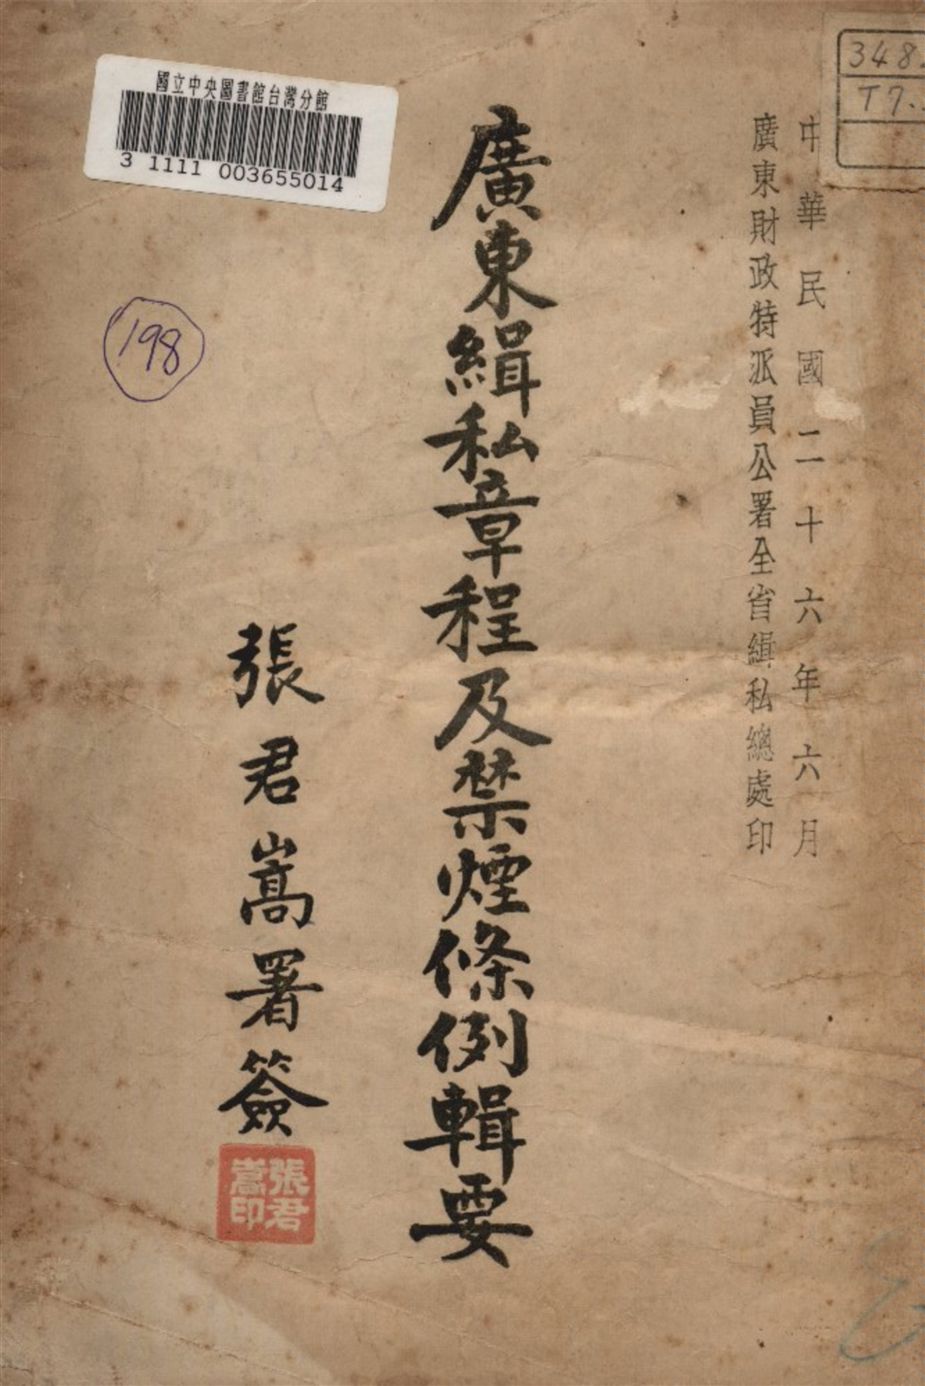 中華民國二十六年六月
廣東財政特派員公署全省緝私總處印
廣東緝私章程及禁煙條例輯要
張君嵩署簽
張君嵩印
國立中央圖書館台灣分館
3 1111 003655014
198
348.
T7.